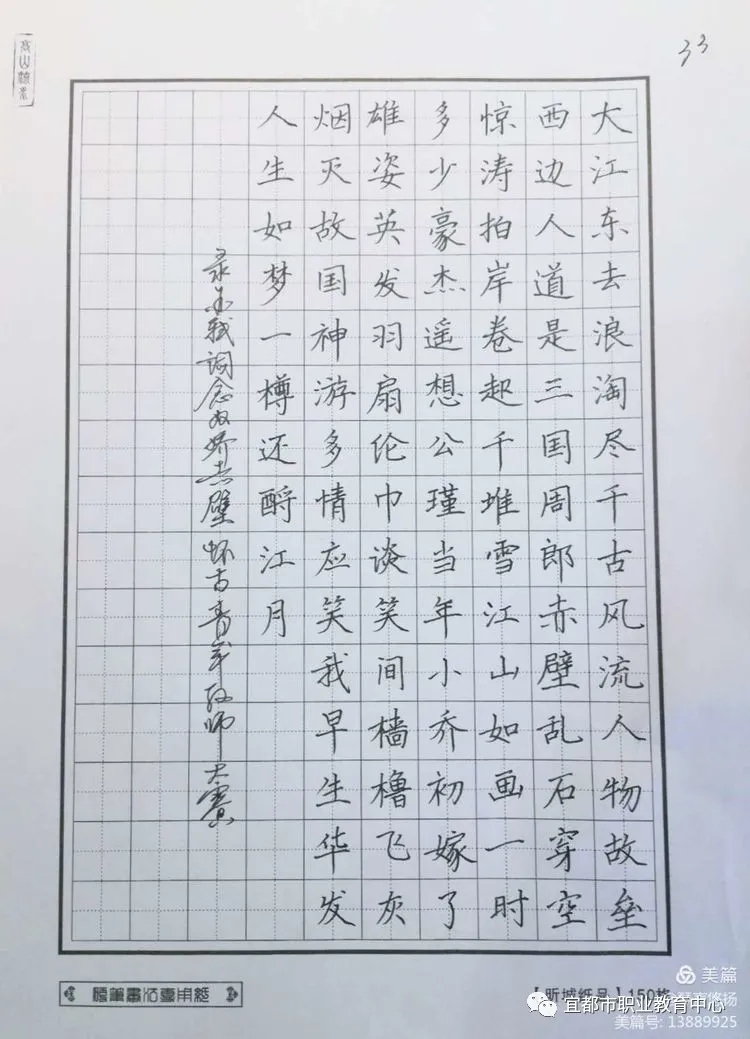 33
大江东去浪淘尽千古风流人物故垒
西边人道是三国周郎赤壁乱石穿空
惊涛拍岸卷起千堆雪江山如画一时
多少豪杰遥想公瑾当年小乔初嫁了
雄姿英发羽扇伦巾谈笑间樯橹飞灰
烟灭故国神游多情应笑我早生华发
人生如梦一樽还酹江月
录苏轼词念奴娇赤壁怀古青年教师大赛
硬笔书法专用纸
【昕城纸品】150格
美篇
宜都市职业教育中心
美篇号: 13889925